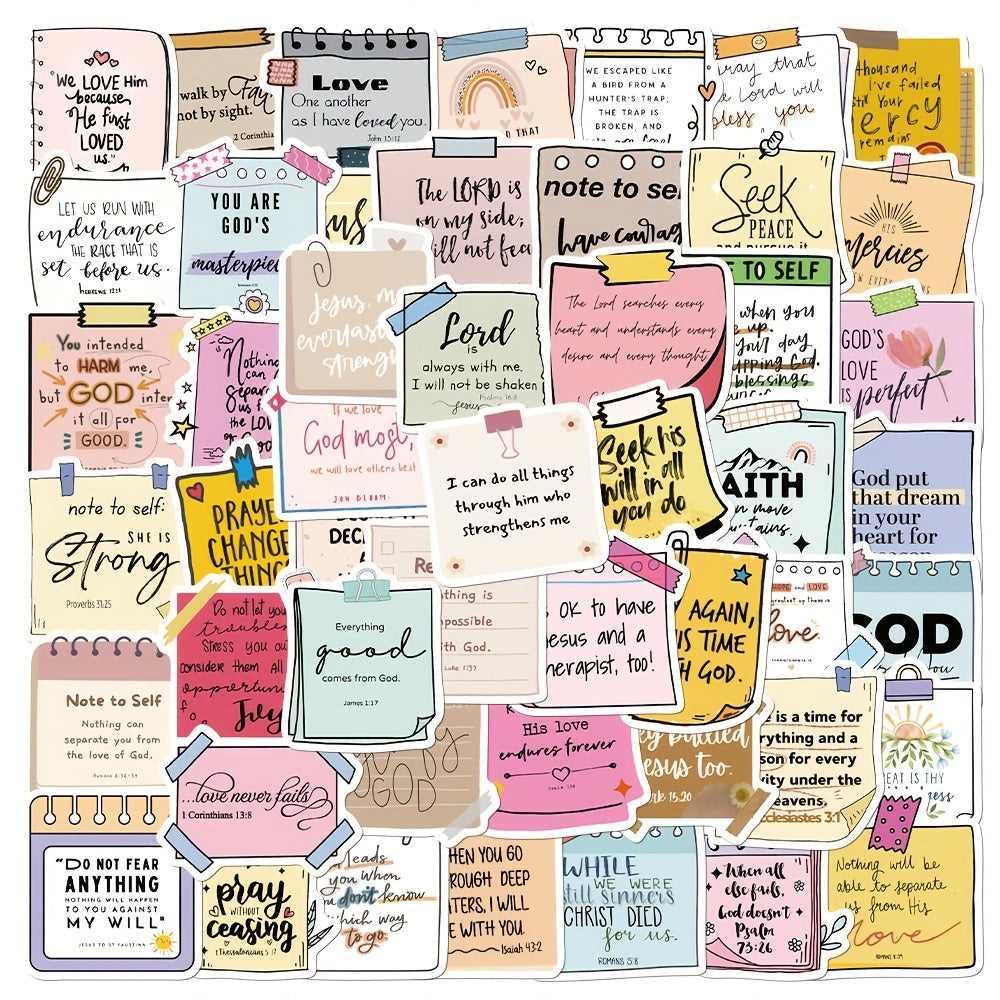 "We LOVE Him
because
He first
LOVED
us."
walk by
not by sight.
2 Corinthia
Love
One another
as I have loved you.
John 15:12
D THAT
WE ESCAPED LIKE
A BIRD FROM A
HUNTER'S TRAP,
THE TRAP IS
BROKEN, AND
pray that
Lord will
bless you
thousand
I've failed
still Your
ercy
remains
LET US RUN WITH
endurance
THE RACE THAT IS
set before us.
HEBREWS 12:1
YOU ARE
GOD'S
masterpie
us
The LORD is
on my side;
ill not fea
note to sel
have courag
Seek
PEACE
and pursue it
HIS
Mercies
Jesus, m
everlasti
strengt
Lord
is
always with me.
I will not be shaken
Psalms 16:8
Jesus
The Lord searches every
heart and understands every
desire and every thought
E TO SELF
when you
up.
your day
blessings
GOD'S
LOVE
is perfect
You intended
to HARM me,
but GOD inten
it all for
GOOD.
Nothing
can
separ
us f
the LOV
If we love
God most,
we will love others best
-JON BLOOM-
I can do all things
through him who
strengthens me
Seek his
will in all
you do
AITH
n move
tains.
God put
that dream
in your
heart for
note to self:
SHE IS
Strong
Proverbs 31:25
PRAYE
CHANGE
THING
DECL
Re
thing is
possible
ith God.
Luke 1:37
OK to have
esus and a
herapist, too!
AGAIN,
IS TIME
H GOD.
HOPE and LOVE
greatest of these is
love.
GOD
you
Note to Self
Nothing can
separate you from
the love of God.
Romans 8:38-39
Do not let you
troubles
stress you ou
consider them all
opportuni
Joy
Everything
good
comes from God.
James 1:17
GOD
His love
endures forever
Psalm 136
ey bullied
esus too.
rk 15:20
e is a time for
rything and a
son for every
vity under the
eavens.
cclesiastes 3:1
EAT IS THY
ess
...love never fails
1 Corinthians 13:8
"DO NOT FEAR
ANYTHING
NOTHING WILL HAPPEN
TO YOU AGAINST
MY WILL"
JESUS TO ST FAUSTINA
pray
WITHOUT
ceasing
1 Thessalonians 5:17
leads
you when
don't know
which way
to go.
HEN YOU GO
ROUGH DEEP
TERS, I WILL
E WITH YOU.
Isaiah 43:2
WHILE
WE WERE
still sinners
CHRIST DIED
for us.
ROMANS 5:8
When all
else fails,
God doesn't
Psalm
73:26
Nothing will be
able to separate
us from His
love
ROMANS 8:39